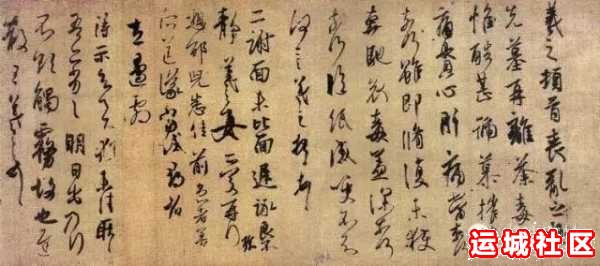 羲之頓首喪亂之極
先墓再離荼毒追
惟酷甚號慕摧絕
痛貫心肝痛當奈何
奈何雖即脩復未獲
奔馳哀毒益深奈何
奈何臨紙感哽不知
何言羲之頓首頓首
二謝面未比面遲詠良
不靜羲之女愛再拜
想邵兒悉佳前患者善
所送議當試尋省
左邊劇
得示知足下猶未佳耿
耿吾亦劣劣明日出乃行
不欲觸霧故也遲
散王羲之頓首
运城社区